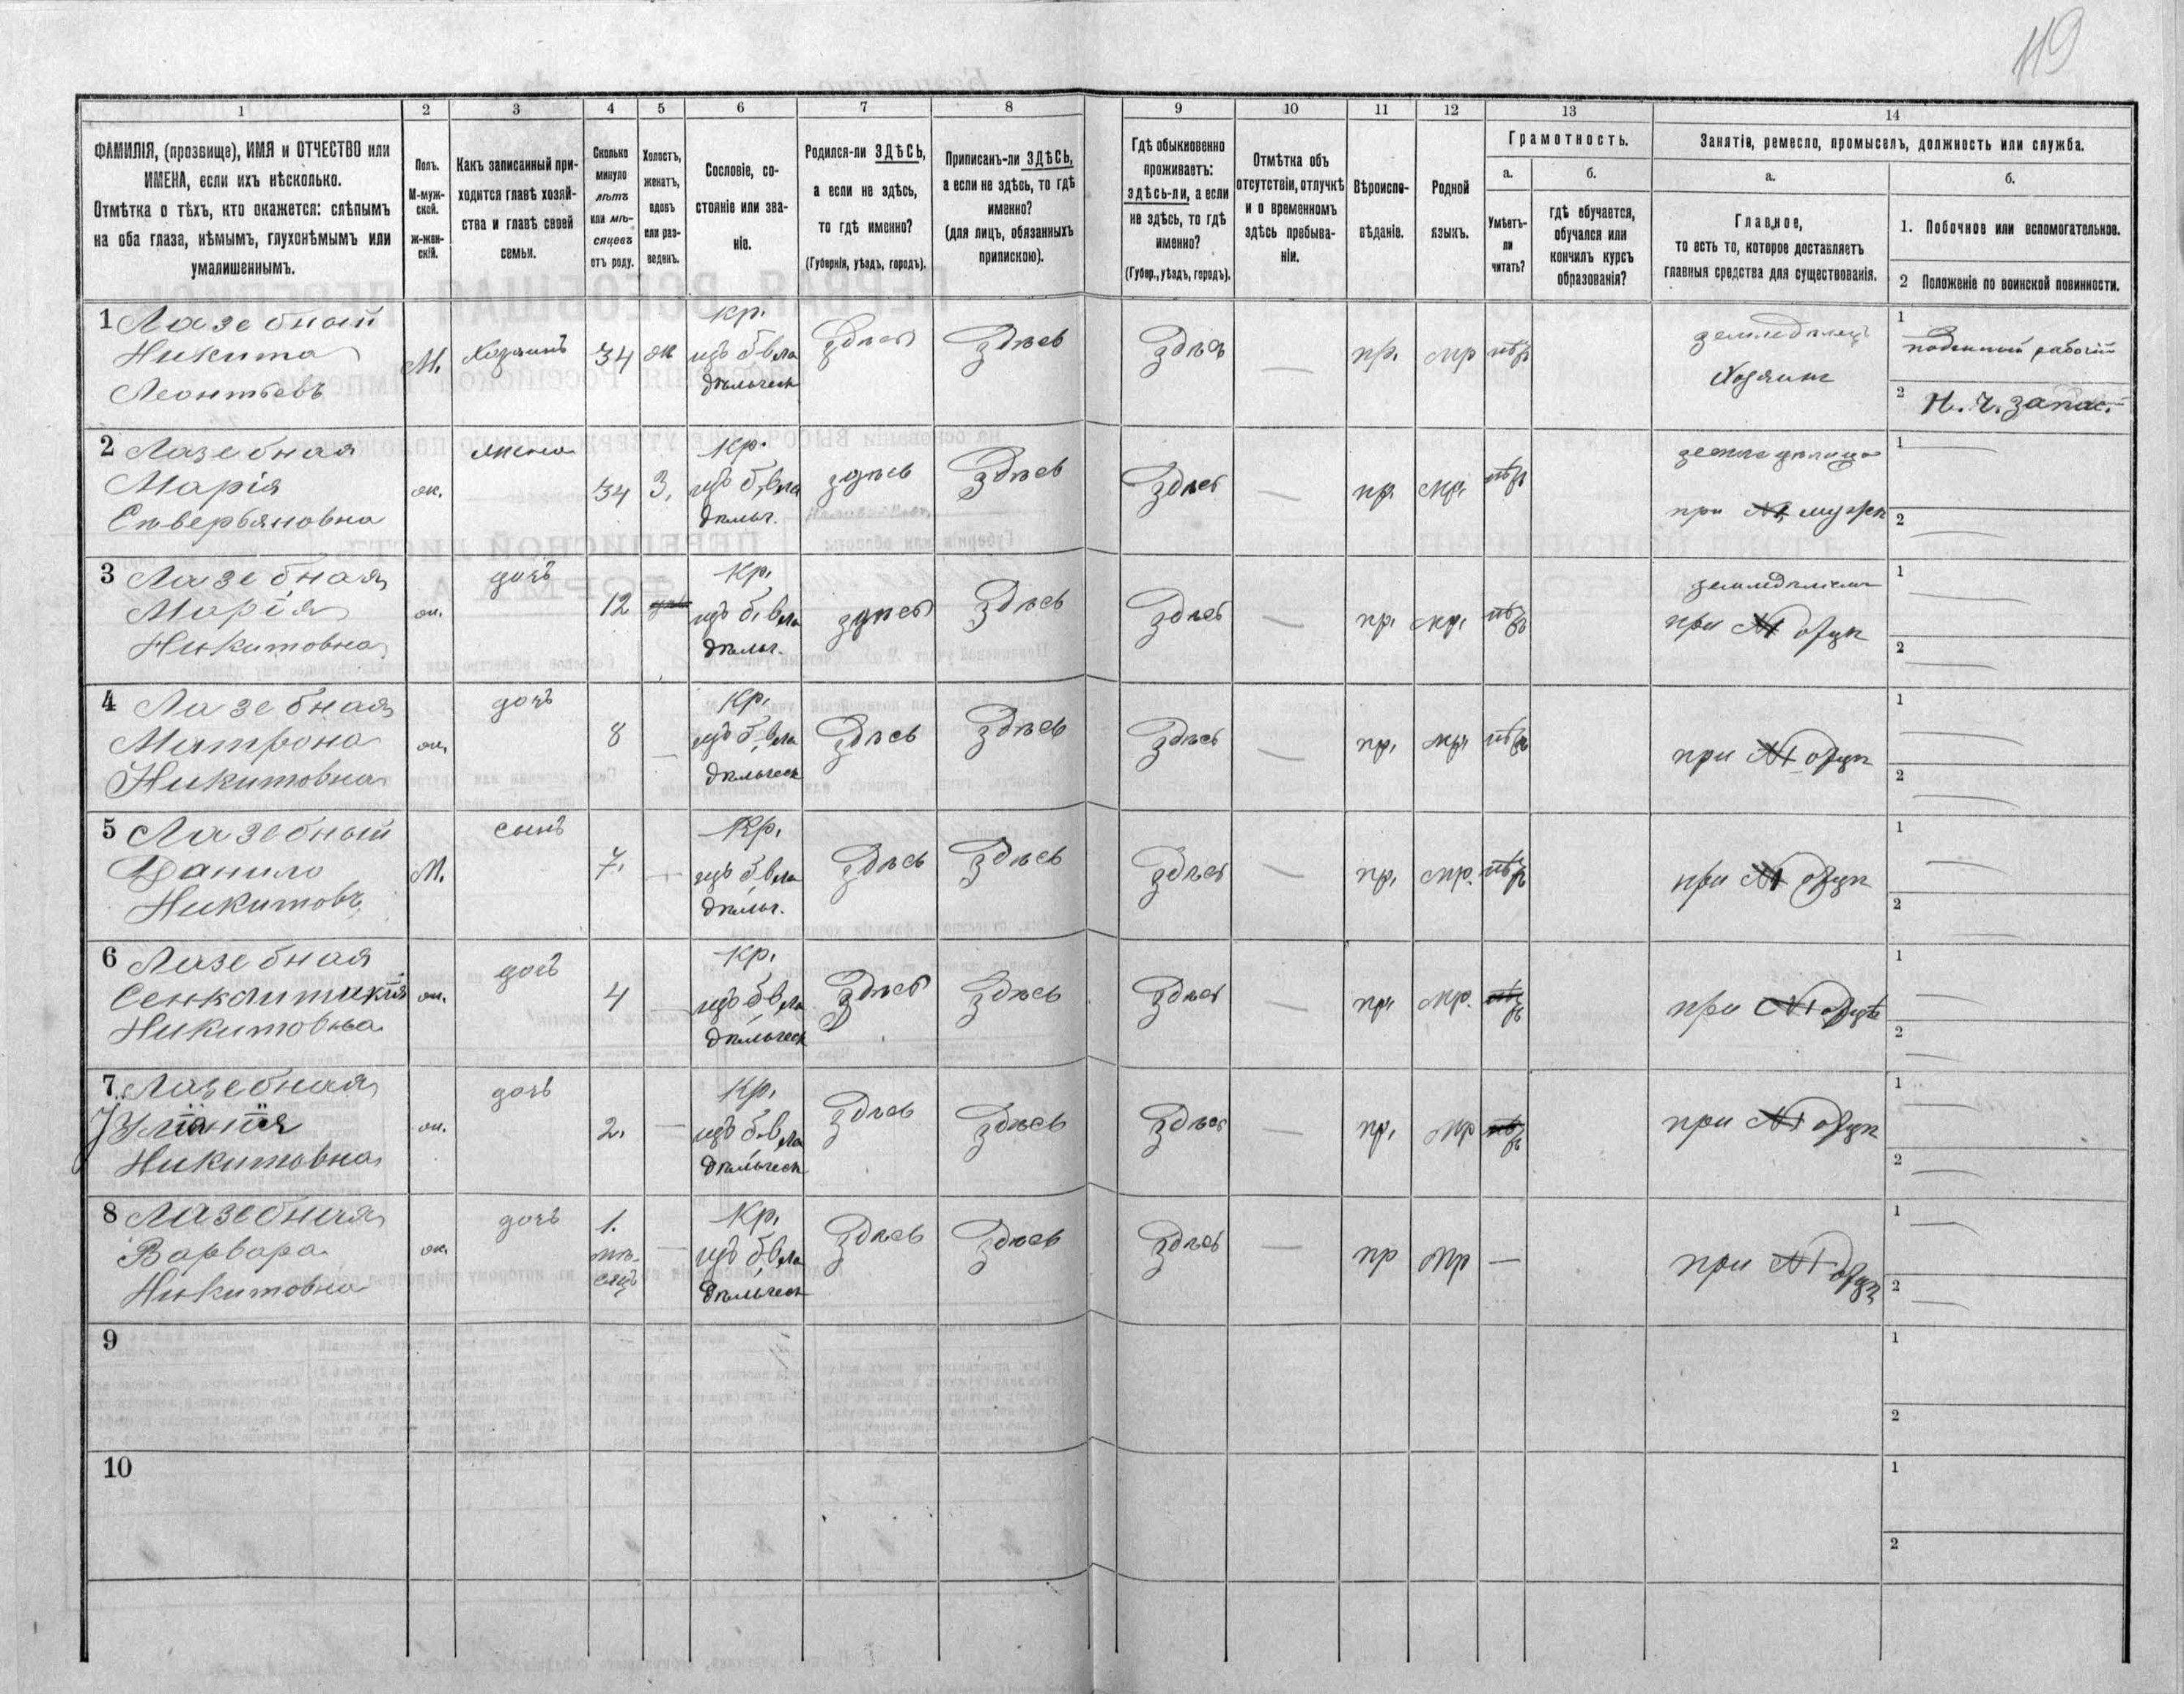 119
1 2 3 4 5 6 7 8 9 10 11 12 13 14
ФАМИЛІЯ, (прозвище), ИМЯ и ОТЧЕСТВО или
ИМЕНА, если ихъ нѣсколько.
Отмѣтка о тѣхъ, кто окажется: слѣпымъ
на оба глаза, нѣмымъ, глухонѣмымъ или
умалишеннымъ.
Полъ.
М-муж-
ской.
Ж-жен-
скій.
Какъ записанный при-
ходится главѣ хозяй-
ства и главѣ своей
семьи.
Сколько
минуло
лѣтъ
или мѣ-
сяцевъ
отъ роду.
Холостъ,
женатъ,
вдовъ
или раз-
веденъ.
Сословіе, со-
стояніе или зва-
ніе.
Родился-ли ЗДѢСЬ,
а если не здѣсь,
то гдѣ именно?
(Губернія, уѣздъ, городъ).
Приписанъ-ли ЗДѢСЬ,
а если не здѣсь, то гдѣ
именно?
(для лицъ, обязанныхъ
припискою).
Гдѣ обыкновенно
проживаетъ:
здѣсь-ли, а если
не здѣсь, то гдѣ
именно?
(Губер., уѣздъ, городъ).
Отмѣтка объ
отсутствіи, отлучкѣ
и о временномъ
здѣсь пребыва-
ніи.
Вѣроиспо-
вѣданіе.
Родной
языкъ.
Грамотность.
а.
Умѣетъ-
ли
читать?
б.
гдѣ обучается,
обучался или
кончилъ курсъ
образованія?
Занятіе, ремесло, промыселъ, должность или служба.
а.
Главное,
то есть то, которое доставляетъ
главныя средства для существованія.
б.
1. Побочное или вспомогательное.
2 Положеніе по воинской повинности.
1 Лазебный
Никита
Леонтьевъ
М. Хозяинъ 34 ж
Кр.
изъ б. вла
дѣльческ
Здѣсь Здѣсь Здѣсь — пр. мр
земледѣлецъ
Хозяинъ
1 поденный рабочій
2 Н. Ч. запас.
2 Лазебная
Марія
Севверьяновна
ж. жена 34 З.
Кр.
изъ б. вла
дѣльч.
здѣсь Здѣсь Здѣсь — пр. мр.
при №1 мужѣ
1
2
3 Лазебная
Марія
Никитовна
ж. дочь 12
Кр.
изъ б. вла
дѣльч.
здѣсь Здѣсь Здѣсь — пр. мр.
при №1 отцѣ
1
2
4 Лазебная
Матрона
Никитовна
ж. дочь 8 —
Кр.
изъ б. вла
дѣльческ
Здѣсь Здѣсь Здѣсь — пр. мр.
при №1 отцѣ
1
2
5 Лазебный
Данило
Никитовъ
М. сынъ 7. —
Кр.
изъ б. вла
дѣльч.
Здѣсь Здѣсь Здѣсь — пр. мр.
при №1 отцѣ
1
2
6 Лазебная
Никитовна
ж. дочь 4 —
Кр.
изъ б. вла
дѣльческ
Здѣсь Здѣсь Здѣсь — пр. мр.
при №1 отцѣ
1
2
7 Лазебная
Никитовна
ж. дочь 2. —
Кр.
изъ б. вла
дѣльческ
Здѣсь Здѣсь Здѣсь — пр. мр
при №1 отцѣ
1
2
8 Лазебная
Варвара
Никитовна
ж. дочь
1.
мѣ-
сяцъ
—
Кр.
изъ б. вла
дѣльческ
Здѣсь Здѣсь Здѣсь — пр мр —
при №1 отцѣ
1
2
9
1
2
10
1
2